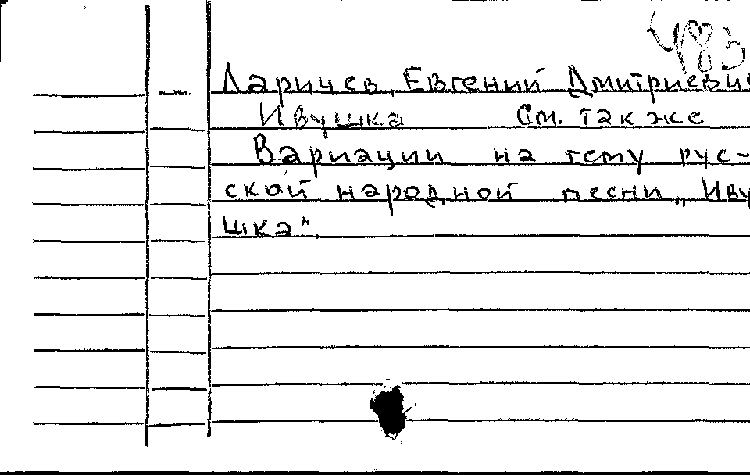 483
Ларичев, Евгений Дмитриевич
Ивушка См. также
Вариации на тему рус-
ской народной песни „Иву
шка"